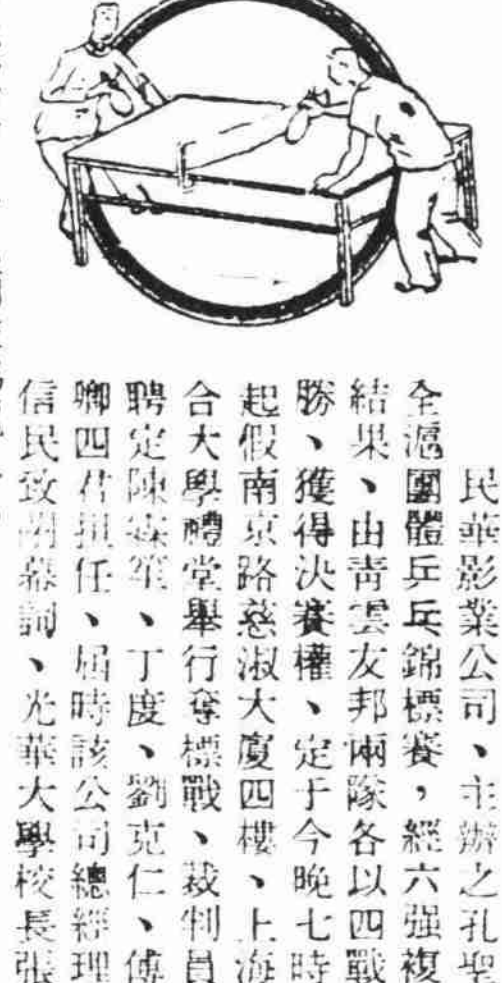 民華影業公司、主辦之孔聖
全滬團體乒乓錦標賽，經六强複
結果、由靑雲友邦兩隊各以四戰
勝、獲得決賽權、定于今晚七時
起假南京路慈淑大廈四樓、上海
合大學禮堂舉行奪標戰、裁判員
聘定陳霖笙、丁度、劉克仁、傅
卿四君担任、屆時該公司總經理
信民致開幕詞、光華大學校長張